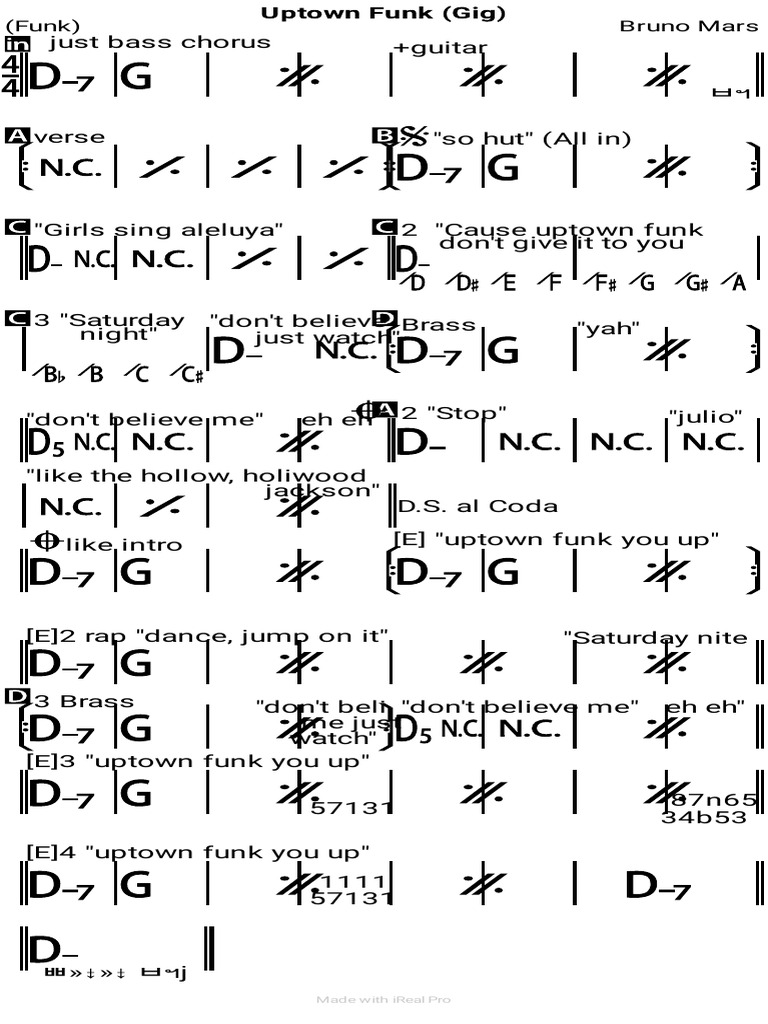 Uptown Funk (Gig)
(Funk) Bruno Mars
in just bass chorus +guitar
4/4 D-7 G
A verse B "so hut" (All in)
N.C. D-7 G
C "Girls sing aleluya" C 2 "Cause uptown funk
don't give it to you
D- N.C. N.C. D-
/D /D# /E /F /F# /G /G# /A
C 3 "Saturday night" "don't believe just watch" D Brass "yah"
D- N.C. D-7 G
/Bb /B /C /C#
"don't believe me" eh eh A 2 "Stop" "julio"
D5 N.C. N.C. D- N.C. N.C. N.C.
"like the hollow, holiwood
jackson"
N.C. D.S. al Coda
like intro [E] "uptown funk you up"
D-7 G D-7 G
[E]2 rap "dance, jump on it" "Saturday nite
D-7 G
D 3 Brass "don't beli me just watch" "don't believe me" eh eh"
D-7 G D5 N.C. N.C.
[E]3 "uptown funk you up"
D-7 G 57131 87n65
34b53
[E]4 "uptown funk you up"
D-7 G 1111 D-7
57131
D-
Made with iReal Pro